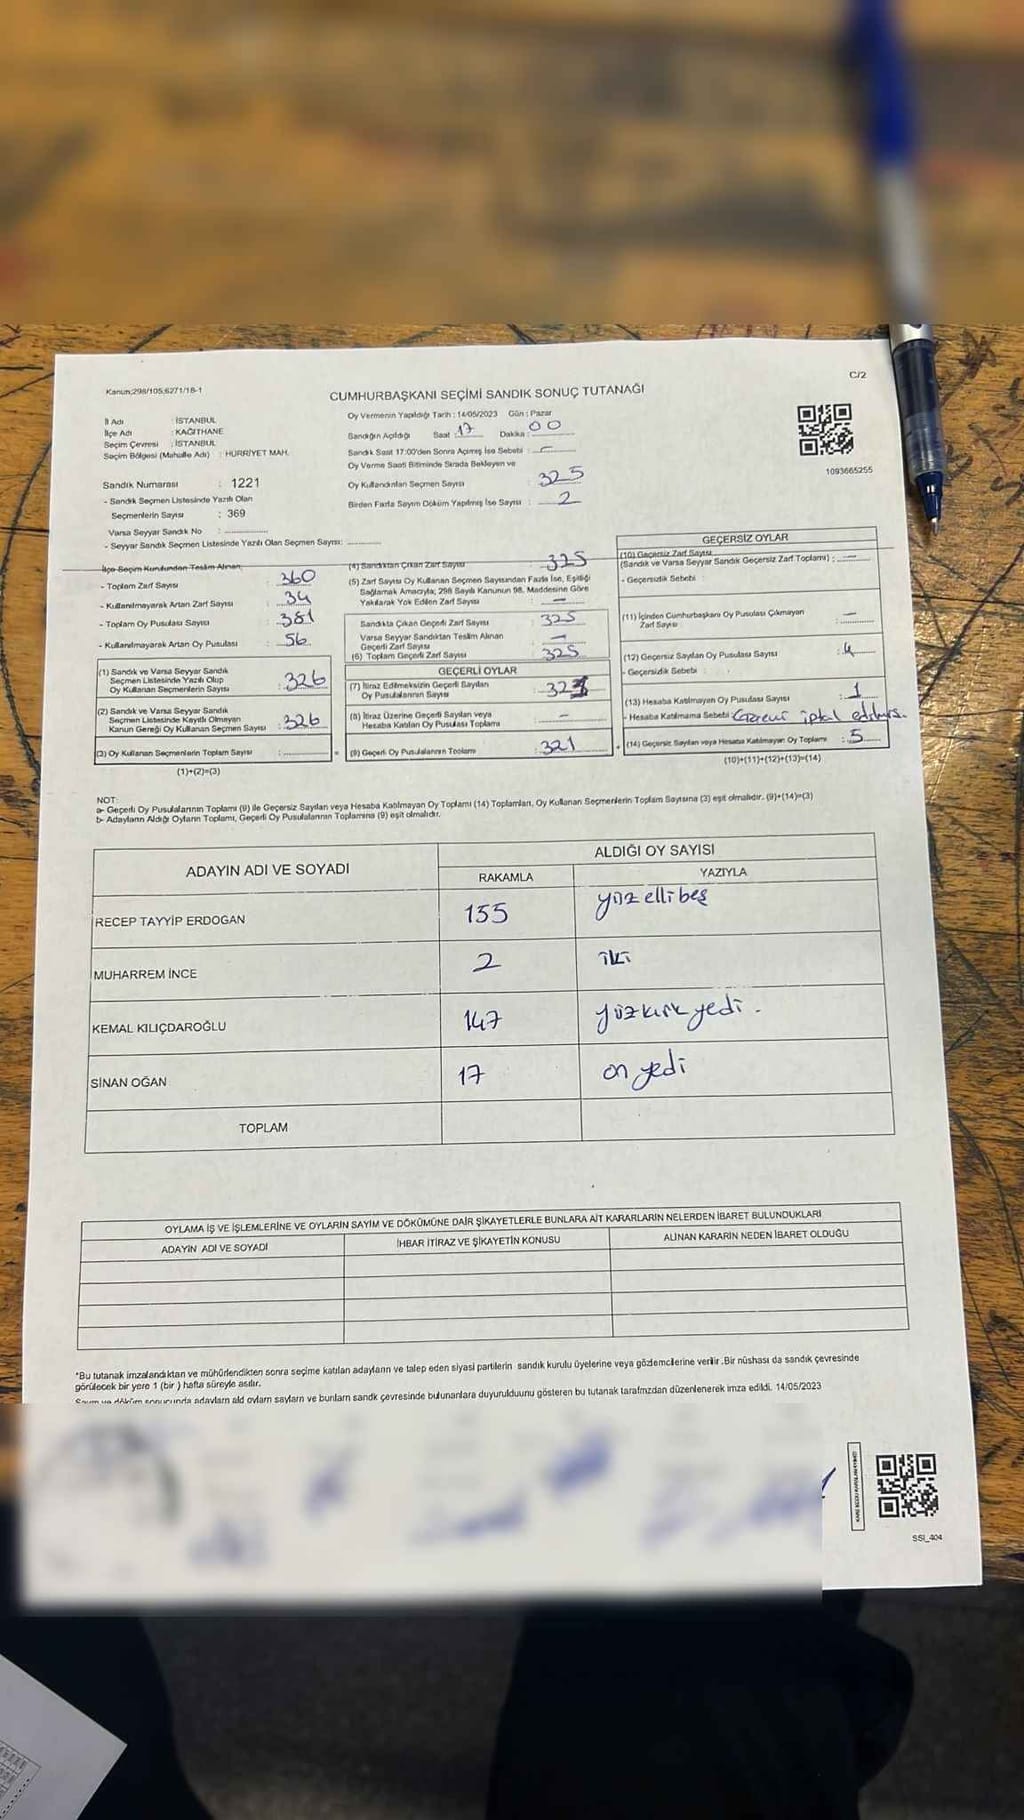 Kanun;298/105;6271/18-1
C/2
CUMHURBAŞKANI SEÇİMİ SANDIK SONUÇ TUTANAĞI
İl Adı : İSTANBUL
İlçe Adı : KAĞITHANE
Seçim Çevresi : İSTANBUL
Seçim Bölgesi (Mahalle Adı) : HÜRRİYET MAH.
Sandık Numarası : 1221
- Sandık Seçmen Listesinde Yazılı Olan
Seçmenlerin Sayısı : 369
Varsa Seyyar Sandık No :
- Seyyar Sandık Seçmen Listesinde Yazılı Olan Seçmen Sayısı:
Oy Vermenin Yapıldığı Tarih : 14/05/2023 Gün : Pazar
Sandığın Açıldığı Saat 17 Dakika : 00
Sandık Saat 17:00'den Sonra Açılmış İse Sebebi : -
Oy Verme Saati Bitiminde Sırada Bekleyen ve
Oy Kullandırılan Seçmen Sayısı : 325
Birden Fazla Sayım Döküm Yapılmış İse Sayısı : 2
1093665255
İlçe Seçim Kurulundan Teslim Alınan;
- Toplam Zarf Sayısı : 360
- Kullanılmayarak Artan Zarf Sayısı : 34
- Toplam Oy Pusulası Sayısı : 381
- Kullanılmayarak Artan Oy Pusulası : 56
(1) Sandık ve Varsa Seyyar Sandık
Seçmen Listesinde Yazılı Olup
Oy Kullanan Seçmenlerin Sayısı : 326
(2) Sandık ve Varsa Seyyar Sandık
Seçmen Listesinde Kayıtlı Olmayan
Kanun Gereği Oy Kullanan Seçmen Sayısı : 326
(3) Oy Kullanan Seçmenlerin Toplam Sayısı :
(1)+(2)=(3)
(4) Sandıktan Çıkan Zarf Sayısı : 325
(5) Zarf Sayısı Oy Kullanan Seçmen Sayısından Fazla İse, Eşitliği
Sağlamak Amacıyla; 298 Sayılı Kanunun 98. Maddesine Göre
Yakılarak Yok Edilen Zarf Sayısı : -
Sandıkta Çıkan Geçerli Zarf Sayısı : 325
Varsa Seyyar Sandıktan Teslim Alınan
Geçerli Zarf Sayısı : -
(6) Toplam Geçerli Zarf Sayısı : 325
GEÇERLİ OYLAR
(7) İtiraz Edilmeksizin Geçerli Sayılan
Oy Pusulalarının Sayısı : 321
(8) İtiraz Üzerine Geçerli Sayılan veya
Hesaba Katılan Oy Pusulası Toplamı : -
(9) Geçerli Oy Pusulalarının Toplamı : 321
GEÇERSİZ OYLAR
(10) Geçersiz Zarf Sayısı
(Sandık ve Varsa Seyyar Sandık Geçersiz Zarf Toplamı) : -
- Geçersizlik Sebebi :
(11) İçinden Cumhurbaşkanı Oy Pusulası Çıkmayan
Zarf Sayısı : -
(12) Geçersiz Sayılan Oy Pusulası Sayısı : 4
- Geçersizlik Sebebi :
(13) Hesaba Katılmayan Oy Pusulası Sayısı : 1
- Hesaba Katılmama Sebebi : iptal
(14) Geçersiz Sayılan veya Hesaba Katılmayan Oy Toplamı : 5
(10)+(11)+(12)+(13)=(14)
NOT:
a- Geçerli Oy Pusulalarının Toplamı (9) ile Geçersiz Sayılan veya Hesaba Katılmayan Oy Toplamı (14) Toplamları, Oy Kullanan Seçmenlerin Toplam Sayısına (3) eşit olmalıdır. (9)+(14)=(3)
b- Adayların Aldığı Oyların Toplamı, Geçerli Oy Pusulalarının Toplamına (9) eşit olmalıdır.
ADAYIN ADI VE SOYADI
ALDIĞI OY SAYISI
RAKAMLA YAZIYLA
RECEP TAYYİP ERDOĞAN 155 yüz elli beş
MUHARREM İNCE 2 iki
KEMAL KILIÇDAROĞLU 147 yüz kırk yedi.
SİNAN OĞAN 17 on yedi
TOPLAM
OYLAMA İŞ VE İŞLEMLERİNE VE OYLARIN SAYIM VE DÖKÜMÜNE DAİR ŞİKAYETLERLE BUNLARA AİT KARARLARIN NELERDEN İBARET BULUNDUKLARI
ADAYIN ADI VE SOYADI İHBAR İTİRAZ VE ŞİKAYETİN KONUSU ALINAN KARARIN NEDEN İBARET OLDUĞU
*Bu tutanak imzalandıktan ve mühürlendikten sonra seçime katılan adayların ve talep eden siyasi partilerin sandık kurulu üyelerine veya gözlemcilerine verilir .Bir nüshası da sandık çevresinde
görülecek bir yere 1 (bir ) hafta süreyle asılır.
Sayım ve döküm sonucunda adayların aldı oyların sayıların ve bunların sandk çevresinde bulunanlara duyurulduunu gösteren bu tutanak tarafmzdan düzenlenerek imza edildi. 14/05/2023
SSI_404